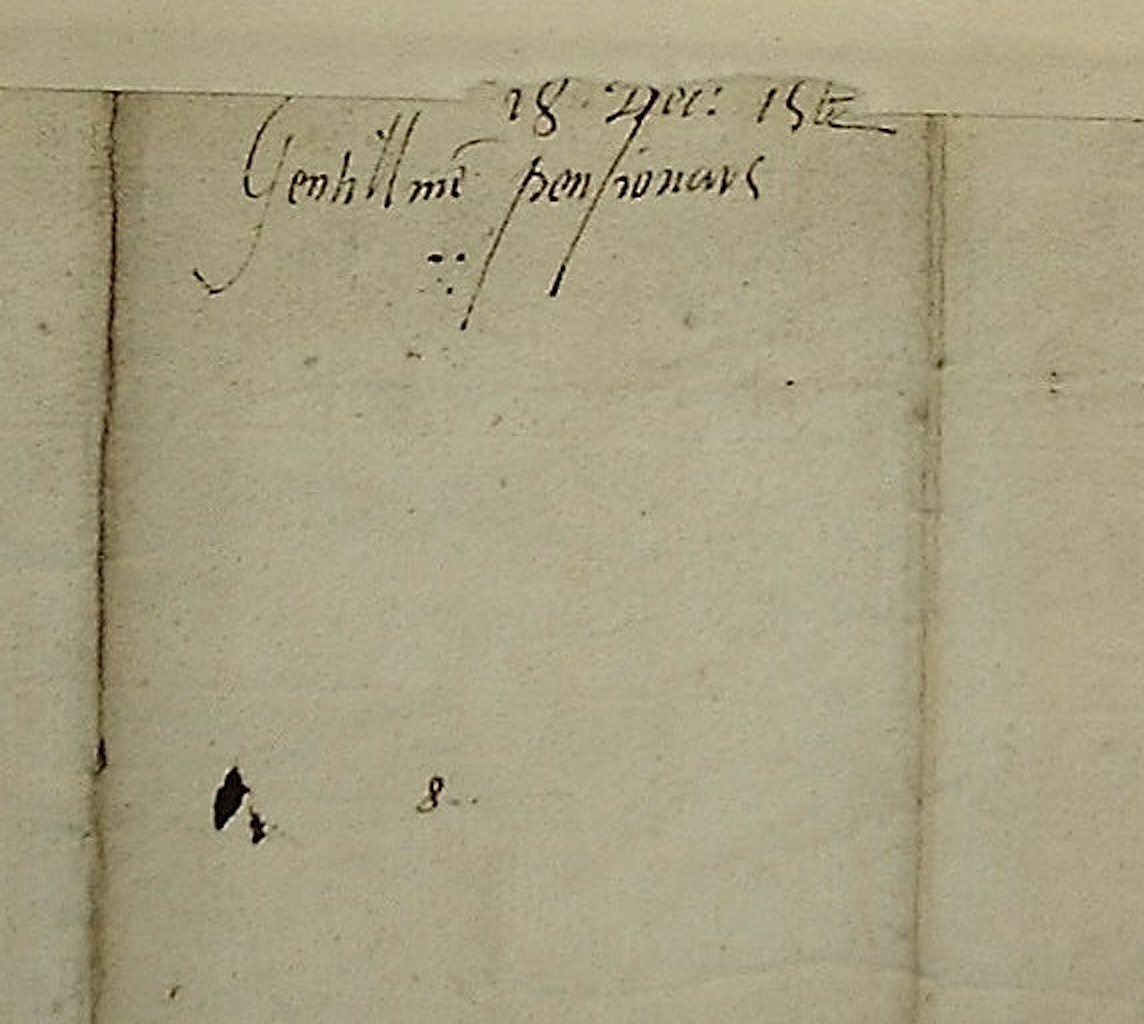 18 Dec:
Gentillmē pensionars
8